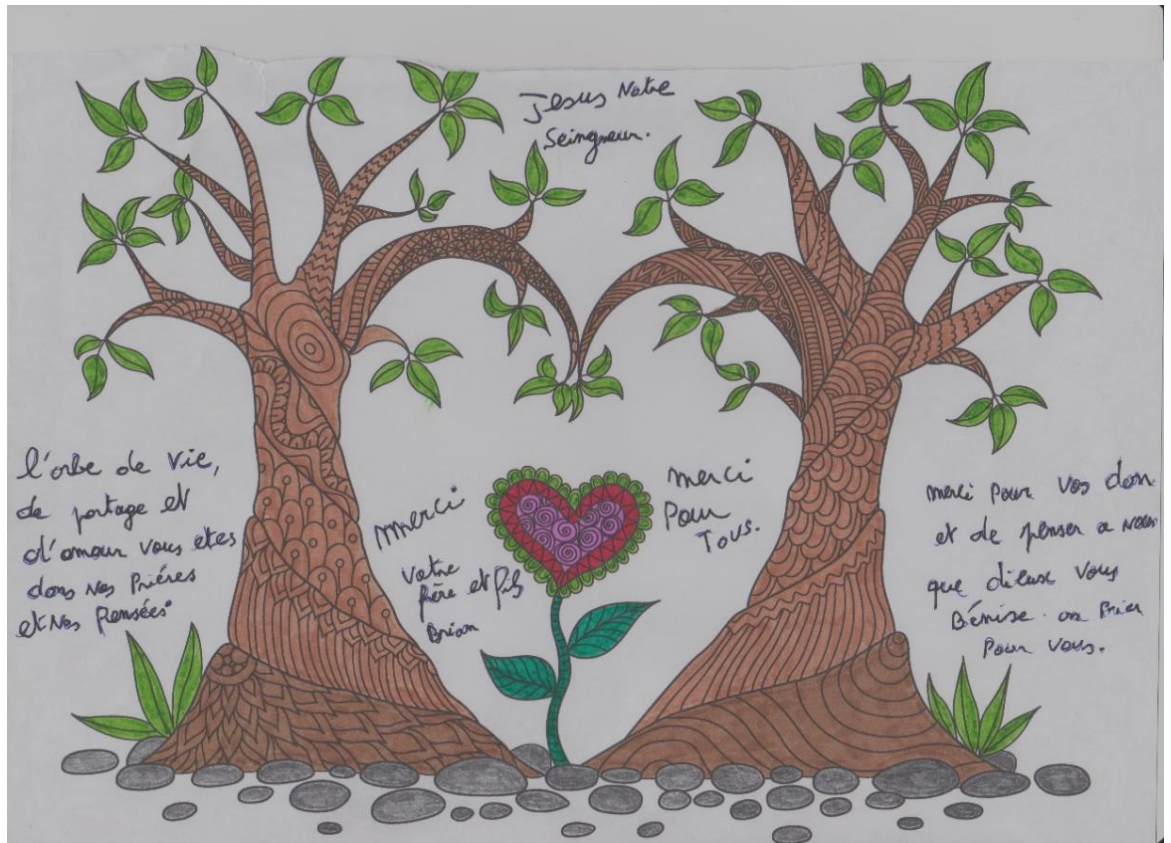 Jesus Notre
Seingneur.
l'arbe de Vie,
de partage et
d'amour vous etes
dans nos Prières
et Nos Pensées
merci
Votre
frère et fils
Brian
merci
Pour
Tous.
merci Pour Vos don
et de penser a nous
que dieux vous
Bénise. on Prier
Pour vous.